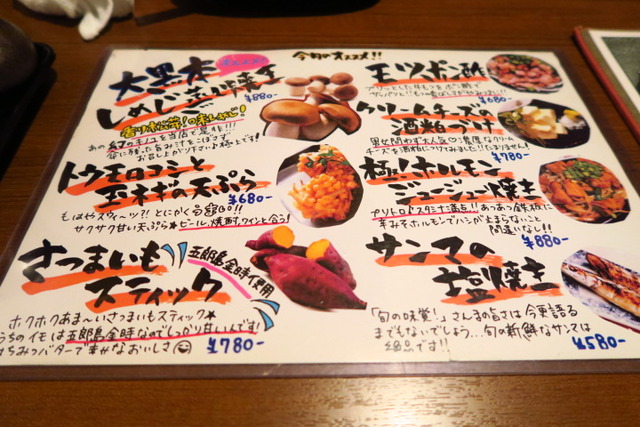 今旬のオススメ!!
大黒本
しめじ茶い焼き
¥880-
香り松茸!の本しめじ!
トウモロコシと
玉ネギの天ぷら
¥680-
もはやスウィ〜ツ?! とにかく
サクサク甘い天ぷら★ビール、焼酎、ワインと合う!
さつまいも
スティック
五郎島金時使用
ホクホクあま〜いさつまいもスティック★
うちのイモは五郎島金時なのでしっかり甘いんです!
はちみつバターで幸かなおいしさ
¥780-
モツポン酢
¥680-
クリームチーズの
酒粕づけ
男女問わず大人気♡濃厚なクリーム
チーズを酒粕につけてみました!!たまりません!
¥780-
極!ホルモン
ジュージュー焼き
プリトロ!スタミナ満点!!あつあつ鉄板に
辛みそホルモンでハシが止まらないこと
間違いなし!!
¥880-
サンマの
塩焼き
「旬の味覚!」さんまの旨さは今更語る
までもないでしょう…旬の新鮮なサンマは
絶品です!!
¥580-